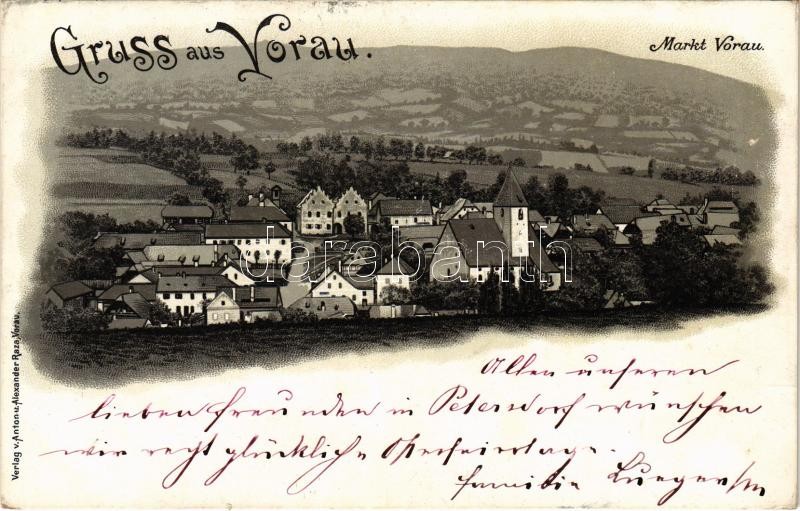 Gruss aus Vorau.
Markt Vorau.
darabanth.com
Verlag v. Anton u. Alexander Raza, Vorau.
Allen unseren
lieben freunden in Petersdorf wünschen
wir recht glückliche Osterfeiertage.
familie